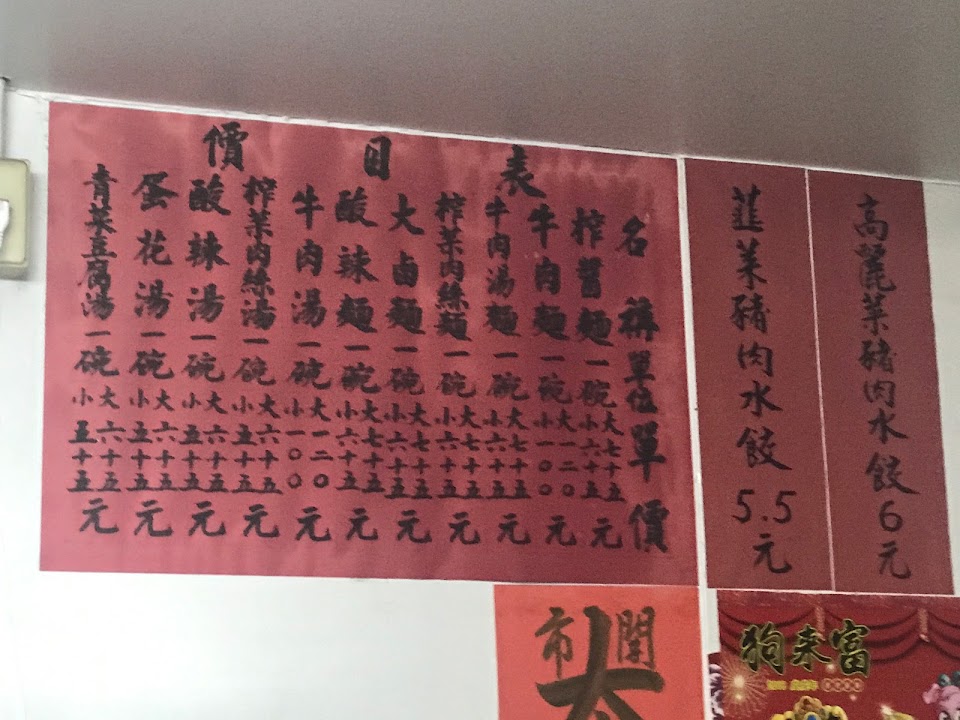 價目表
名稱單位單價
榨醬麵一碗大七十五小六十五元
牛肉麵一碗大一二〇小一〇〇元
牛肉湯麵一碗大七十五小六十五元
榨菜肉絲麵一碗大七十五小六十五元
大卤麵一碗大七十五小六十五元
酸辣麵一碗大七十五小六十五元
牛肉湯一碗大一二〇小一〇〇元
榨菜肉絲湯一碗大六十五小五十五元
酸辣湯一碗大六十五小五十五元
蛋花湯一碗大六十五小五十五元
青菜豆腐湯一碗大六十五小五十五元
高麗菜豬肉水餃6元
韮菜豬肉水餃5.5元
開市
狗来富